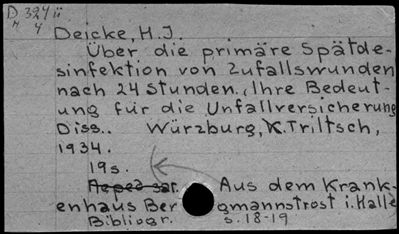 D 324 ü
H 4
Deicke, H.J.
Über die primäre Spätde-
sinfektion von Zufallswunden
nach 24 Stunden. Ihre Bedeut-
ung für die Unfallversicherung
Diss.. Würzburg, K.Triltsch,
1934.
19s.
Aus dem Krank-
enhaus Bergmannstrost i. Halle
Bibliogr. s. 18-19